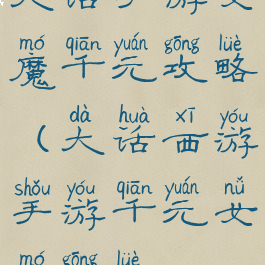 mó qiān yuán gōng lüè
魔千元攻略
dà huà xī yóu
(大话西游
shǒu yóu qiān yuán nǚ
手游千元女
mó gōng lüè